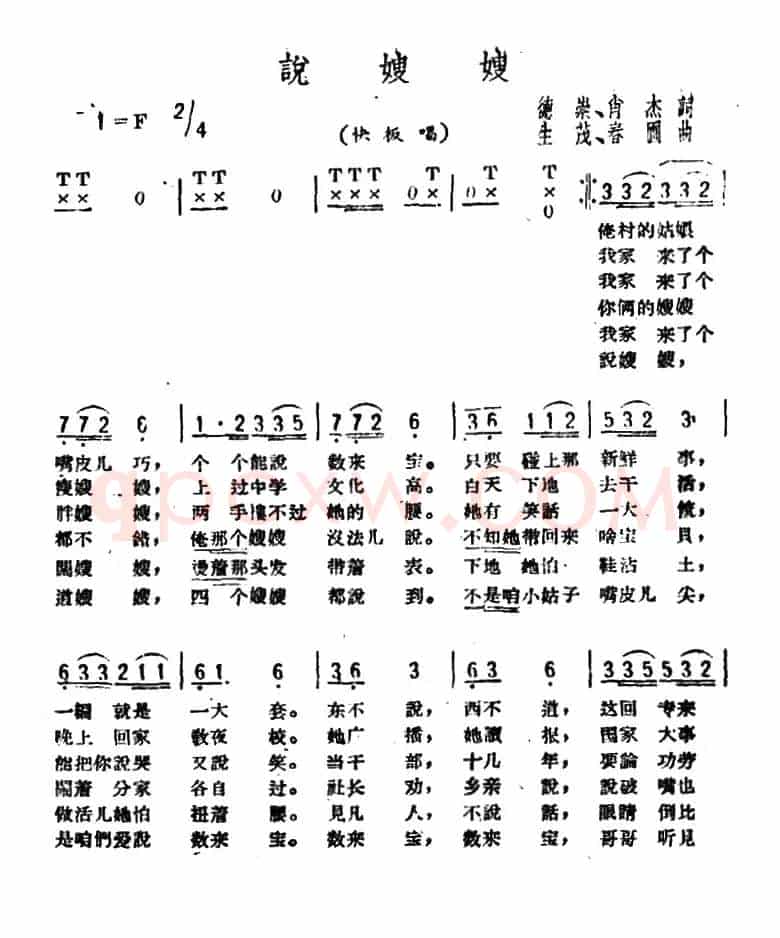 說嫂嫂
1=F 2/4
(快板唱)
德崇、肖杰詞
生茂、春圃曲
T T T T T T T T T T
× × 0 | × × 0 | × × × 0 × | 0 × × 0
332 332
俺村的姑娘
我家 来了个
我家 来了个
你俩的嫂嫂
我家 来了个
說嫂嫂,
772 6 | 1·2 335 | 772 6 | 36 112 | 532 3 |
嘴皮儿 巧, 个个能說 数来宝。 只要 碰上那 新鮮事,
瘦嫂 嫂, 上过中学 文化高。 白天 下地 去干活,
胖嫂 嫂, 两手搂不过 她的腰。 她有 笑話 一大
都不 錯, 俺那个嫂嫂 沒法儿說。 不知她带回来 啥宝貝,
嫂 嫂, 燙着那头发 带着表。 下地 她怕 鞋沾土,
道嫂 嫂, 四个嫂嫂 都說到。 不是咱小姑子 嘴皮儿尖,
633 211 | 61 6 | 36 3 | 63 6 | 335 532
一編 就是 一大套。 东不說, 西不道, 这回 专来
晚上 回家 教夜校。 她广播, 她讀报, 国家 大事
能把你說哭 又說笑。 当干部, 十几年, 要論 功劳
鬧着 分家 各自过。 社长劝, 乡亲說, 說破 嘴也
做活儿她怕 扭着腰。 見凡人, 不說話, 眼睛 倒比
是咱們爱說 数来宝。 数来宝, 数来宝, 哥哥 听見